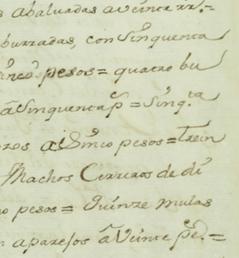 s abaluadas aveinte rr.=
burradas, con Sinquenta
sinco pesos = quatro bu
â Sinquenta p = Sinq.ta
ros a Sinco pesos = Trein
Machos Cerreros de di
o pesos = Quinze mulas
n aparejos â Veinte p.s =